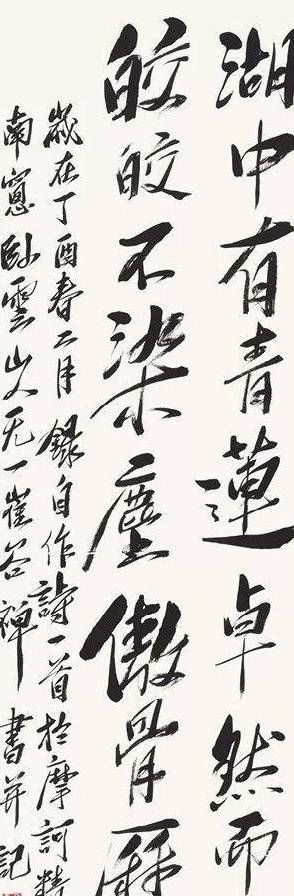 湖中有青蓮卓然而
皎皎不染塵傲骨
歲在丁酉春二月錄自作詩一首於摩訶精
南窻卧雲山人无一崔谷禪書并記